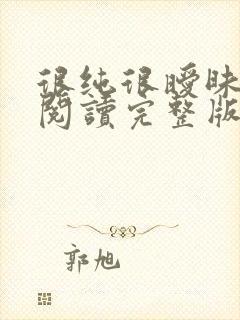 很純很曖昧
閱讀完整版
郭旭